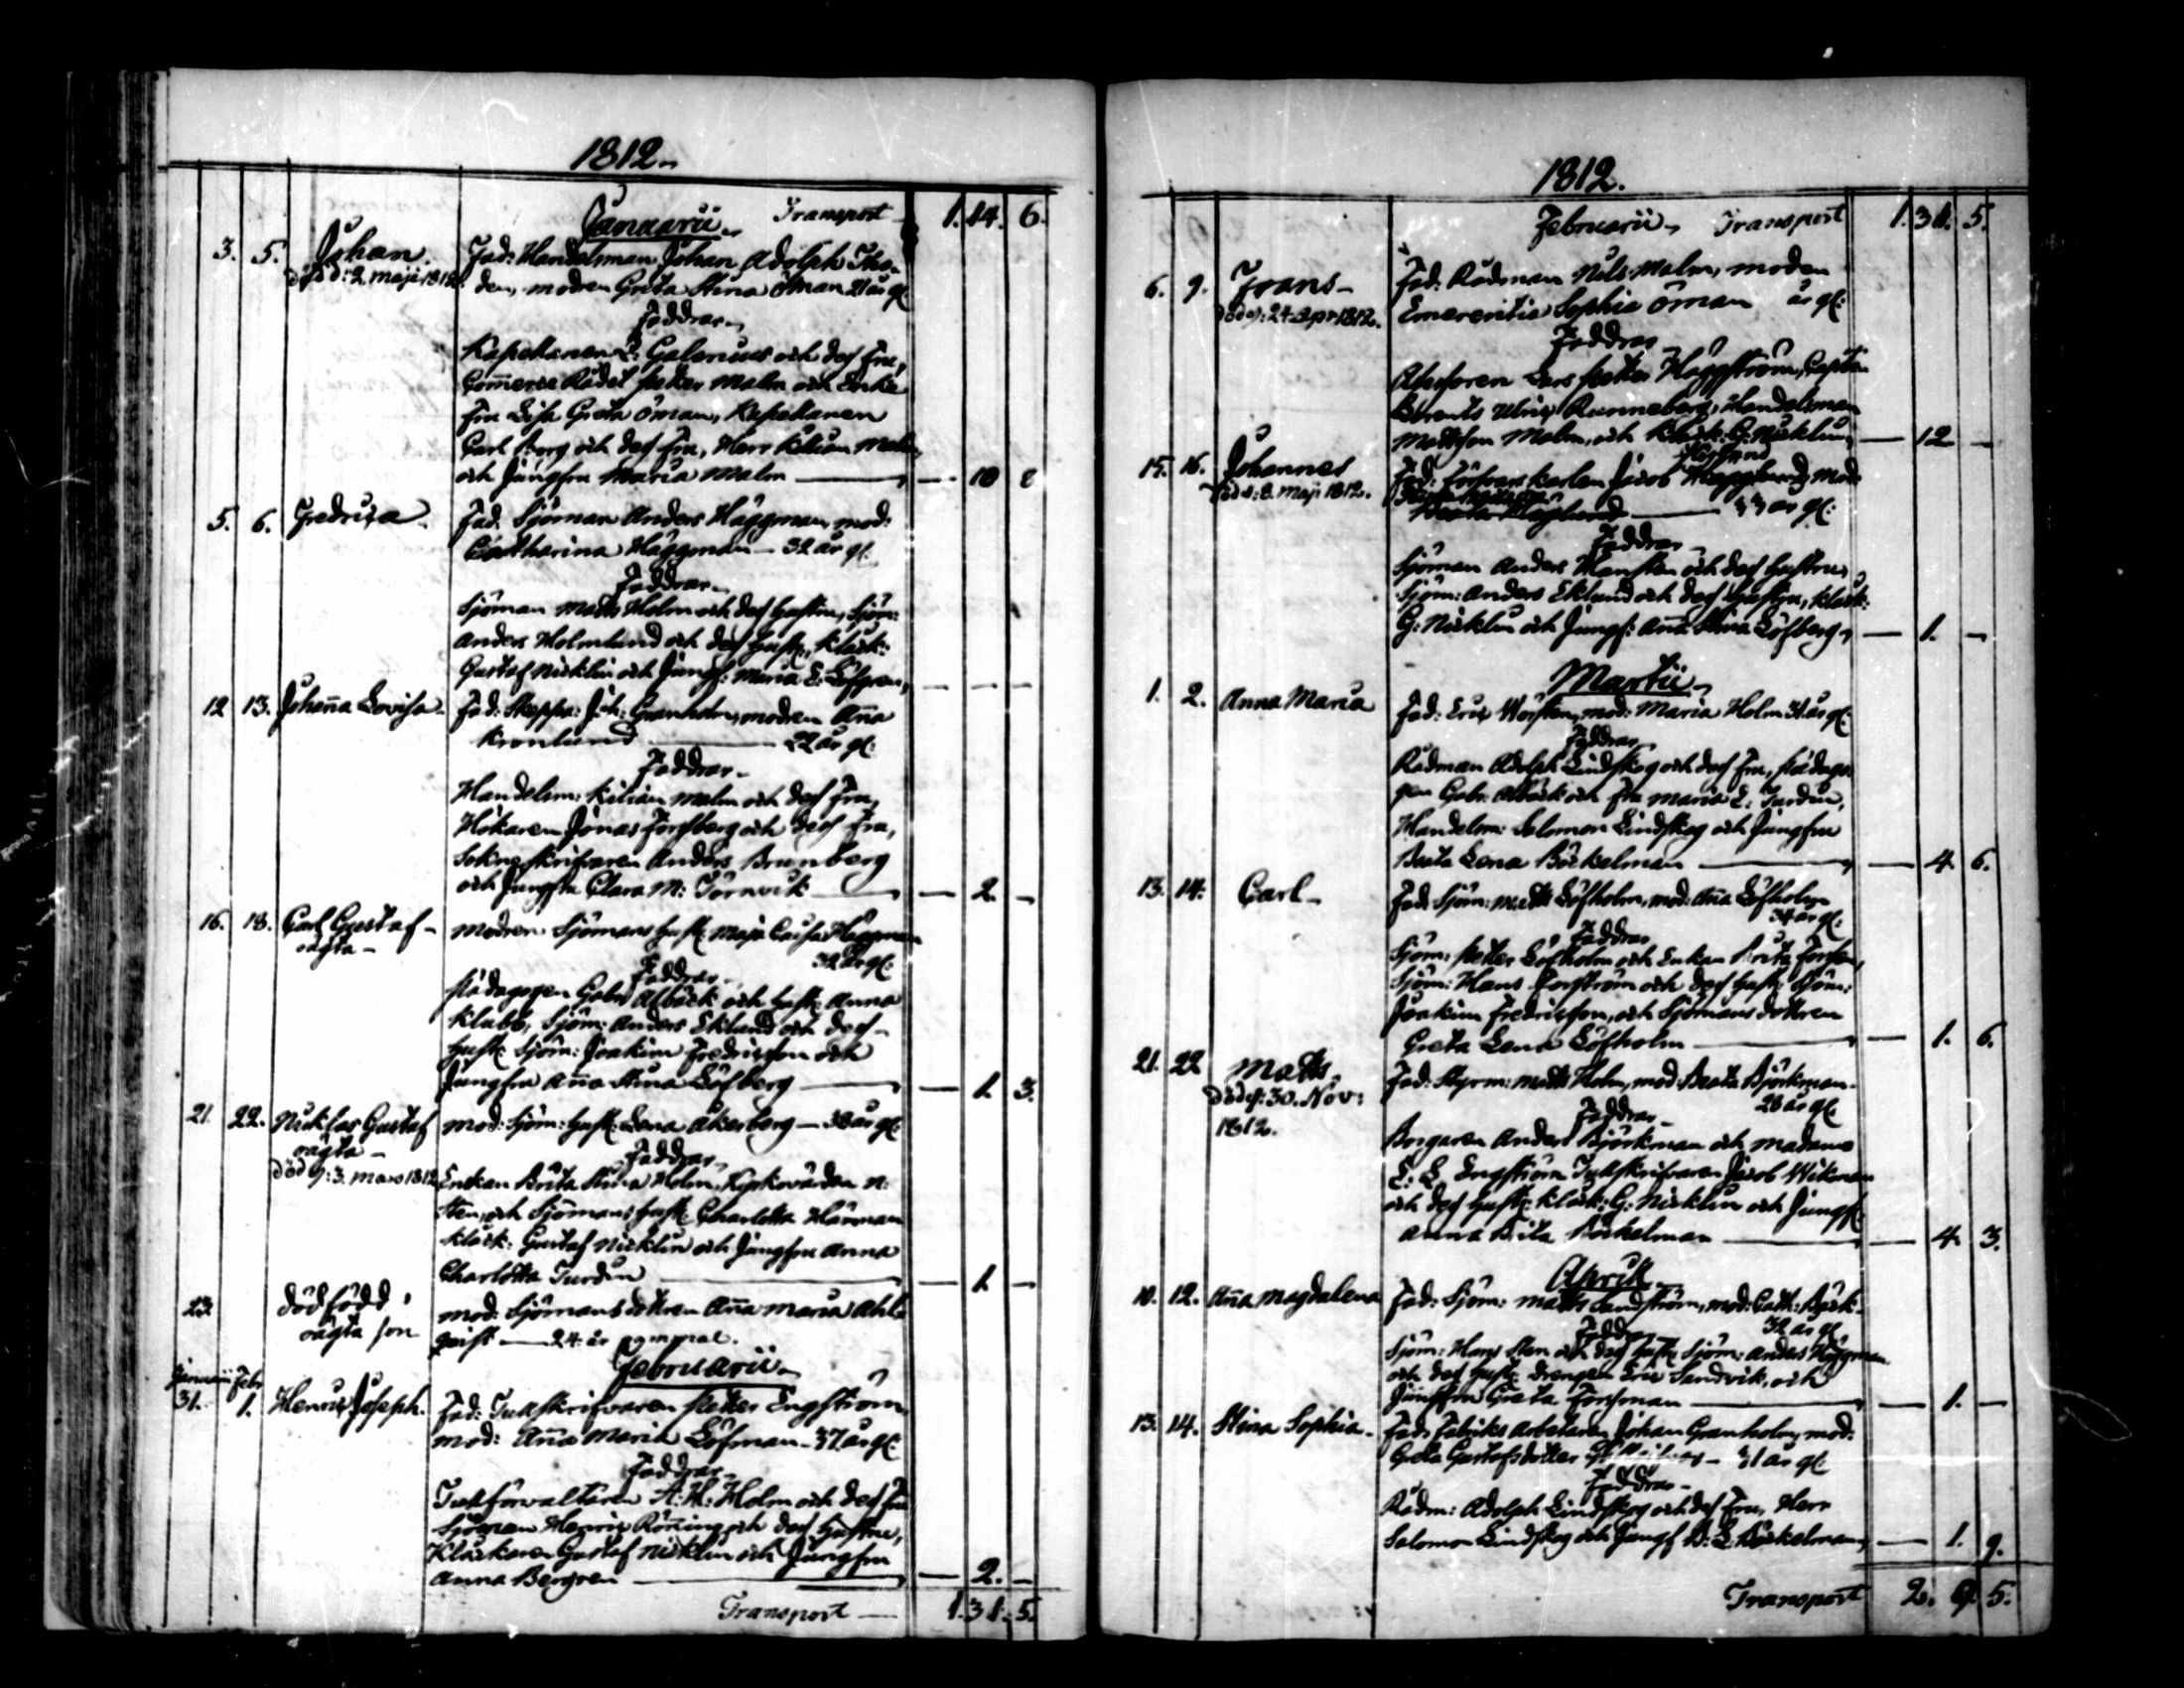 1812.
Januarii. Transport 1. 14. 6.
3. 5. Johan. Fad: Handelsman Johan Adolph Tho-
död d: 2. maji 1812. den, modren Greta Stina Öman 21 år gl:
Faddrar
Kapellanen Galenius och dess Fru,
Commerce Rådet Petter Malm och Enke
Fru Lisa Greta Öman, Kapellanen
Carl Borg och dess Fru, Herr Kilian Malm
och Jungfru Maria Malm — 10 8
5. 6. Fredrica. Fad. Sjöman Anders Häggman, mod:
Catharina Häggman — 32 år gl.
Faddrar
Sjöman Matts Holm och dess Hustru, Sjöm:
Anders Holmlund och dess Hust:, Klock:
Gustaf Nicklin och Jungf: Maria E: Löfgren, — — —
12 13. Johanna Lovisa. Fad: Skeppa: Joh: Granholm, modren Anna
Kronlund — 22 år gl:
Faddrar
Handelsm: Kilian Malm och dess Fru,
Hökaren Jonas Forsberg och dess Fru,
Sokneskrifvaren Anders Brunberg
och Jungfru Clara M: Törnvik — 2. —
16. 18. Carl Gustaf — modren Sjömans Hust: Maja Caisa Häggman
oägta — 32 år gl:
Faddrar
Pädagogen Gabr: Albäck och Hust: Anna
Klubb, Sjöm: Anders Eklund och dess
Hust: Sjöm: Joakim Fredricsson och
Jungfru Anna Stina Löfberg — 1. 3.
21 22. Nicklas Gustaf mod: Sjöm: Hust: Lena Åkerberg — 38 år gl:
oägta —
Faddrar
död d: 3. mars 1812 Enkan Brita Stina Holm, Kyrkovärden N:
Sten, och Sjömans Hust: Charlotta Härman
Klock: Gustaf Nicklin och Jungfru Anna
Charlotta Turdin — 1. —
23. dödfödd, mod: Sjömans dottren Anna Maria Ahl-
oägta son qvist — 24 år
Februarii
Januarii Febr
31. 1. Henric Joseph. Fad: Tullskrifvaren Petter Engström,
mod: Anna Maria Löfman — 37 år gl:
Faddrar
Tullförvaltaren A: H: Holm och dess Fru
Sjöman Henric Röning och dess Hustru,
Klockaren Gustaf Nicklin och Jungfru
Anna Bergren — 2. —
Transport — 1. 31. 5.
1812.
Februarii Transport 1. 31. 5.
6. 9. Frans — Fad: Rådman Nils Malm, modren
död d: 24 Apr 1812. Emerentia Sophia Öman år gl:
Faddrar
Assessoren Lars Petter Häggström, Capten
Berents Ulric Runneberg, Handelsman
Mattsson Malm, och Klock: G: Nicklin, — 12 —
15. 16. Johannes Fad: Förfvars karlen Jacob Hägglund, mod:
död d: 8. maji 1812. — 33 år gl:
Faddrar
Sjöman Anders Hansten och dess Hustru,
Sjöm: Anders Eklund och dess Hustru, Klock:
G: Nicklin och Jungf: Anna Stina Löfberg, — 1. —
Martii
1. 2. Anna Maria Fad: Eric Wörsten, mod: Maria Holm 31 år gl:
Faddrar
Rådman Adolph Lindskog och dess Fru, Pädago-
gen Gabr: Albäck och Fru Maria E: Turdin,
Handelsm: Salomon Lindskog och Jungfru
Beata Lena Böckelman — 4. 6.
13. 14. Carl — Fad: Sjöm: Matts Löfholm, mod: Anna Löfholm
34 år gl:
Faddrar
Sjöm: Petter Löfholm och Enkan Brita Forsen,
Sjöm: Hans Forsström och dess Hust: Sjöm:
Joakim Fredricsson, och Sjömans dottren
Greta Lena Löfholm — 1. 6.
21. 22 Matts, Fad: Styrm: Matts Holm, mod: Beata Björkman
död d: 30. Nov: 28 år gl:
1812. Faddrar
Borgaren Anders Björkman och Madame
E: E: Engström Tullskrifvaren Jacob Wikman
och dess Hust: Klock: G: Nicklin och Jungf:
Anna Brita Böckelman — 4. 3.
Aprill
10. 12. Anna Magdalena Fad: Sjöm: Matts Sandström, mod: Cath: Björk-
32 år gl
Faddrar
Sjöm: Hans Sten och dess Hust: Sjöm: Anders Häggman
och dess Hust: drengen Eric Sandvik, och
Jungfru Greta Forsman — 1. —
13. 14. Stina Sophia — Fad: Fabriks Arbetaren Johan Granholm, mod:
Greta Gustafsdotter — 31 år gl:
Faddrar
Rådm: Adolph Lindskog och dess Fru, Herr
Salomon Lindskog och Jungf: B: L: Böckelman, — 1. 9.
Transport 2. 9. 5.